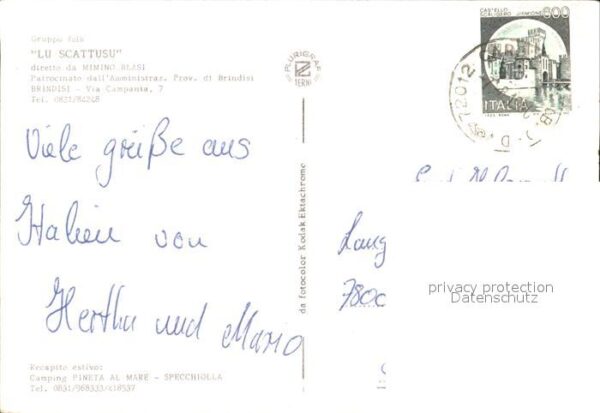 Gruppo folk
"LU SCATTUSU"
diretto da MIMINO BLASI
Patrocinato dall'Amministraz. Prov. di Brindisi
BRINDISI - Via Campania, 7
Tel. 0831/84248
PLURIGRAF
TERNI
CASTELLO SCALIGERO SIRMIONE 600
ITALIA
72012
Viele grüße aus
Italien von
Hertha und Mario
da fotocolor Kodak Ektachrome
Lang
7800
privacy protection
Datenschutz
Recapito estivo:
Camping PINETA AL MARE - SPECCHIOLLA
Tel. 0831/968333/418537